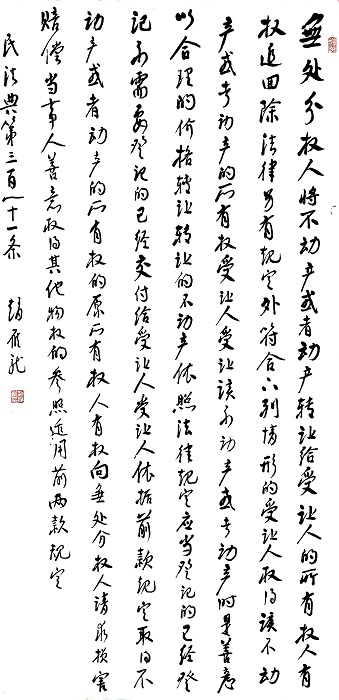 無处分权人将不动产或者动产转让给受让人的所有权人有
权追回除法律另有规定外符合下列情形的受让人取得该不动
产或者动产的所有权受让人受让该不动产或者动产时是善意
以合理的价格转让转让的不动产依照法律规定应当登记的已经登
记不需要登记的已经交付给受让人受让人依据前款规定取得不
动产或者动产的所有权的原所有权人有权向無处分权人请求损害
赔偿当事人善意取得其他物权的参照适用前两款规定
民法典第三百一十一条